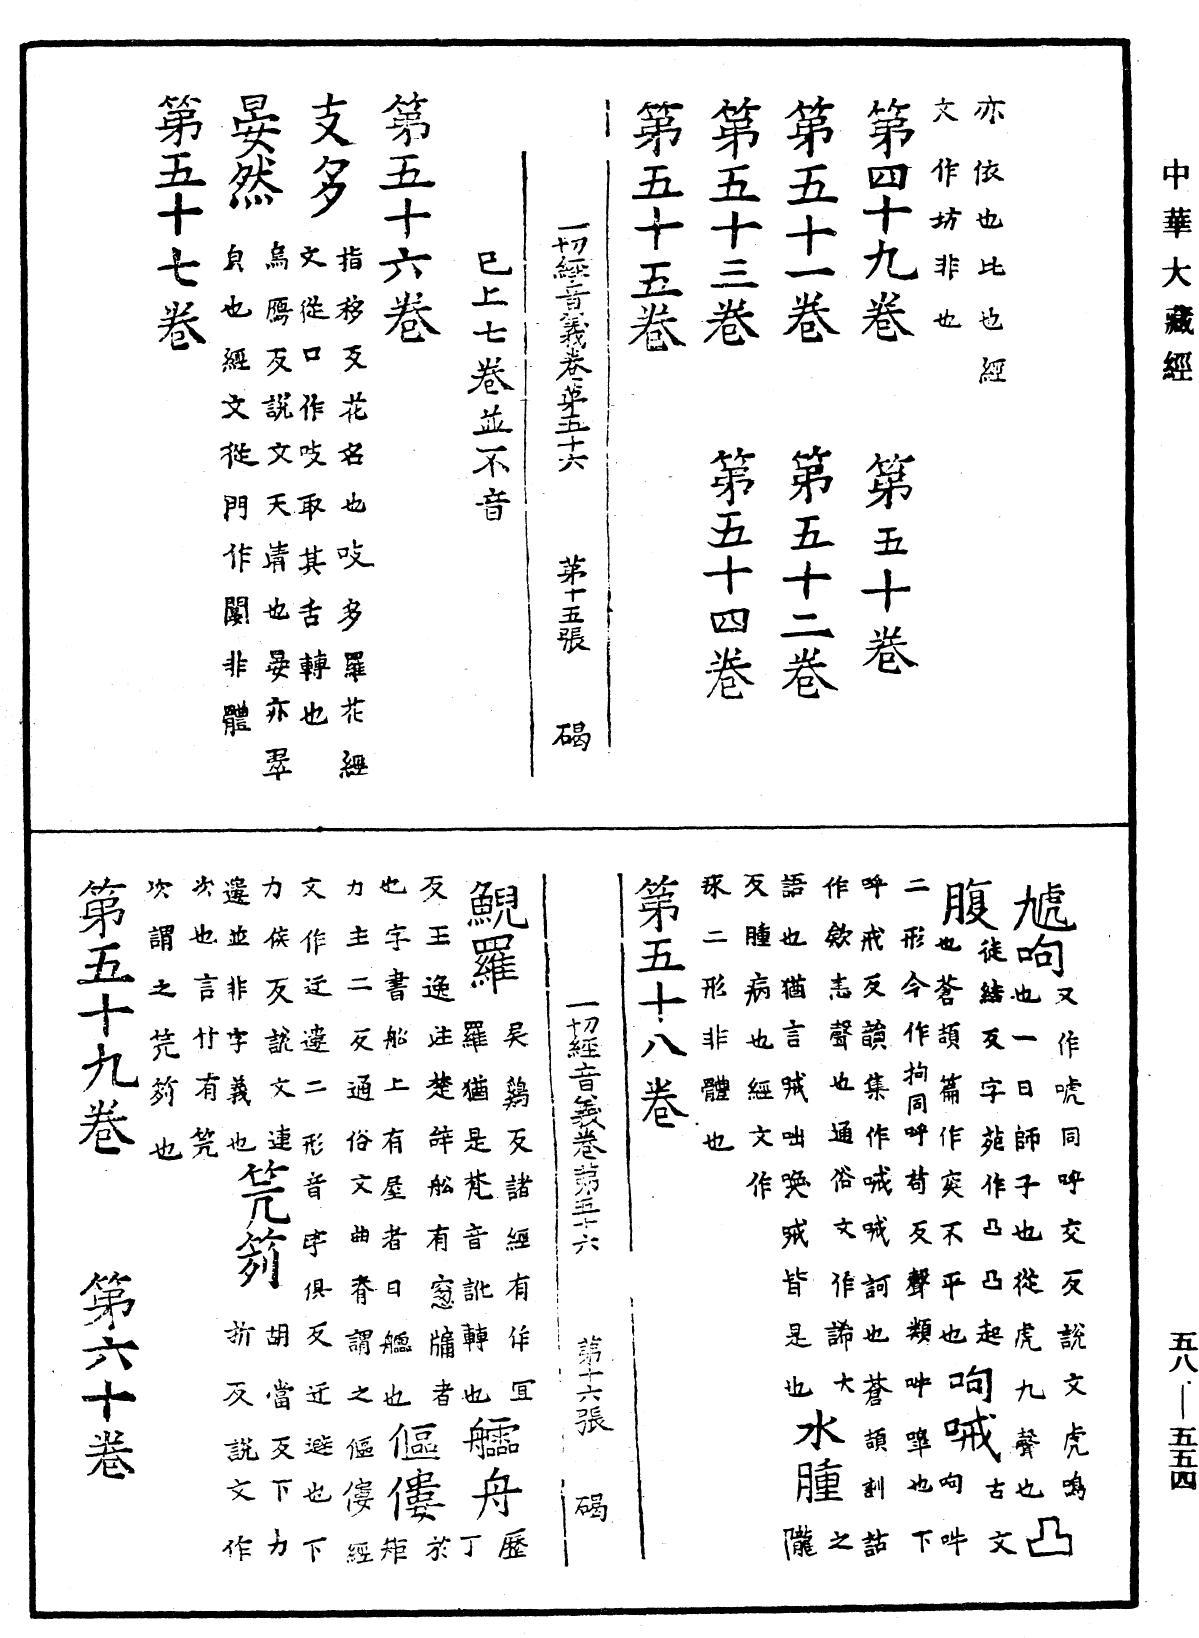 中華大藏經
亦依也比也經
文作坊非也
第四十九卷 第五十卷
第五十一卷 第五十二卷
第五十三卷 第五十四卷
第五十五卷
一切經音義卷第五十六 第十五張 碣
已上七卷並不音
第五十六卷
支多 指移反花名也吱多羅花經
文從口作吱取其舌轉也
晏然 烏鴈反說文天清也晏亦翠
皃也經文從門作闅非體
第五十七卷
虓呴 又作唬同呼交反說文虎鳴
也一曰師子也從虎九聲也 凸
腹 徒結反字苑作凸凸起
也蒼頡篇作突不平也 呴㖑 古文
二形今作拘同呼苟反聲類呴嘷也下
呼戒反韻集作㖑㖑訶也蒼頡訓詁
作欸恚聲也通俗文作諦大
語也猶言㖑咄喚㖑皆是也 水腫 之隴
反腫病也經文作
瘃二形非體也
第五十八卷
一切經音義卷第五十六 第十六張 碣
鯢羅 吳鷄反諸經有作冝
羅猶是梵音訛轉也 艫舟 歷丁
反王逸注楚辝舩有窓牖者
也字書舩上有屋者曰艫也 傴僂 於矩
力主二反通俗文曲脊謂之傴僂經
文作迂邊二形音𠅘俱反迂避也下
力侯反說文連
邊並非字義也 笐笏 胡當反下力
折反說文作
次也言竹有笐
次謂之笐笏也
第五十九卷 第六十卷
五八·—五五四